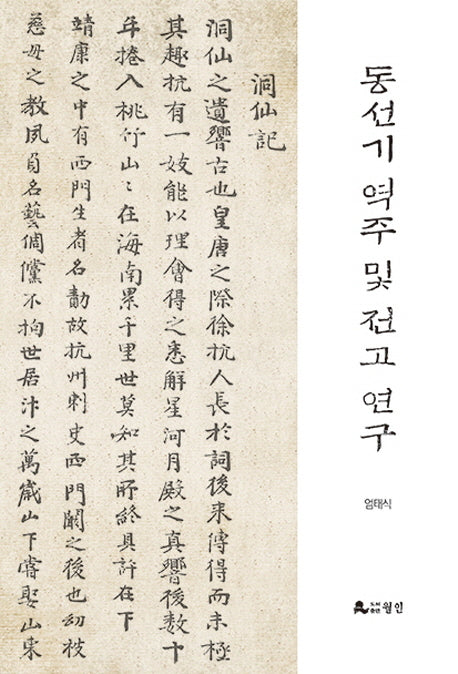 洞仙記
洞仙之遺響古也皇唐之際徐抗人長於詞後来傳得而未極
其趣抗有一妓能以理會得之悉解星河月殿之真響後数十
年捲入桃竹山〻在海南累千里世莫知其所終具訴在下
靖康之中有西門生者名勣故抗州刺史西門闞之後也幼被
慈母之教夙負名藝倜儻不拘世居汴之萬歲山下嘗娶山東
동선기 역주 및 전고 연구
엄태식
도서출판 월인